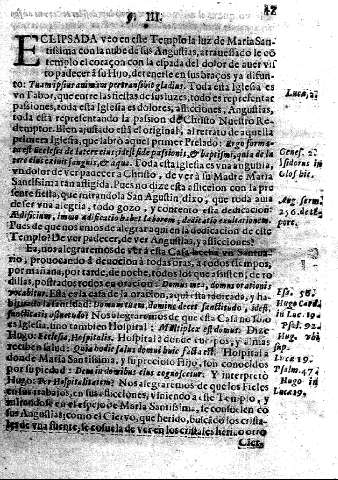 §. III.
42
ECLIPSADA veo en este Templo la luz de Maria San-
tissima con la nube de sus Angustias, atravessado le co-
templo el coraçon con la espada del dolor de aver vis-
to padecer à su Hijo, detenerle en sus braços yà difun-
to: Tuam ipsius animam pertransivit gladius. Toda esta Iglesia es
un Tabor, que entre las fiestas de sus luzes, todo es representar
passiones, toda esta Iglesia es dolores, aflicciones, Angustias,
toda està representando la passion de Christo Nuestro Re-
demptor. Bien ajustado està el original, al retrato de aquella
primera Iglesia, que labrò aquel primer Prelado:
Ecclesia de latere eius: id est de passionis, & baptismi, quia de la-
tere eius exivit sanguis, & aqua. Toda esta Iglesia es una angustia,
un dolor de ver padecer à Christo, de ver à su Madre Maria
Santissima tan afligida. Pues no dize esta afliccion con la pre
sente fiesta, que mirandola San Agustin dixo, que toda avia
de ser una alegria, todo gozo, y contento esta dedicacion:
Ædificium, imuo ædificatio habet laborem, dedicatio exultationem.
Pues de que nos emos de alegrar aqui en la dedicacion de este
Templo? De ver padecer, de ver Angustias, y aflicciones?
Ea, nos alegraremos de ver à esta Casa hecha un Santua-
rio, provocando à devocion à todas horas, à todos tiempos,
por mañana, por tarde, de noche, todos los que assisten, de ro
dillas, postrados todos en oracion: Domus mea, domus orationis
vocabitur. Esta es la casa de la oracion, aqui està adorada, y ha-
bitando la
Iglesia: uno tambien Hospital: Multiplex est domus. Dize
Hugo: Ecclesia, Hospitalis. Hospital à donde cuerpos, y almas
reciben salud: Quia hodie salus domui huic facta est. Hospital à
donde Maria Santissima, y su precioso Hijo, son conocidos
por su piedad: Deus in domibus eius cognoscetur. Y interpretò
Hugo: Per Hospitalitatem? Nos alegraremos de que los Fieles
en sus trabajos, en sus aflicciones, viniendo a este Templo, y
mirandose en el espejo de Maria Santissima, se consuelen co
sus Angustias; como el Ciervo, que herido, busca
les de una fuente, se consuela de ver en los cristales
Cier-
Luca, 2.
Genes. 2.
Isidorus in
Glos. bic.
Aug. serm.
256. de
por.
Esa. 56.
Hugo Card.
in Luc. 19.
Psal. 92.
Hug. ubi
sup.
Luca 19.
Psalm. 47.
Hugo in
Luca 19.